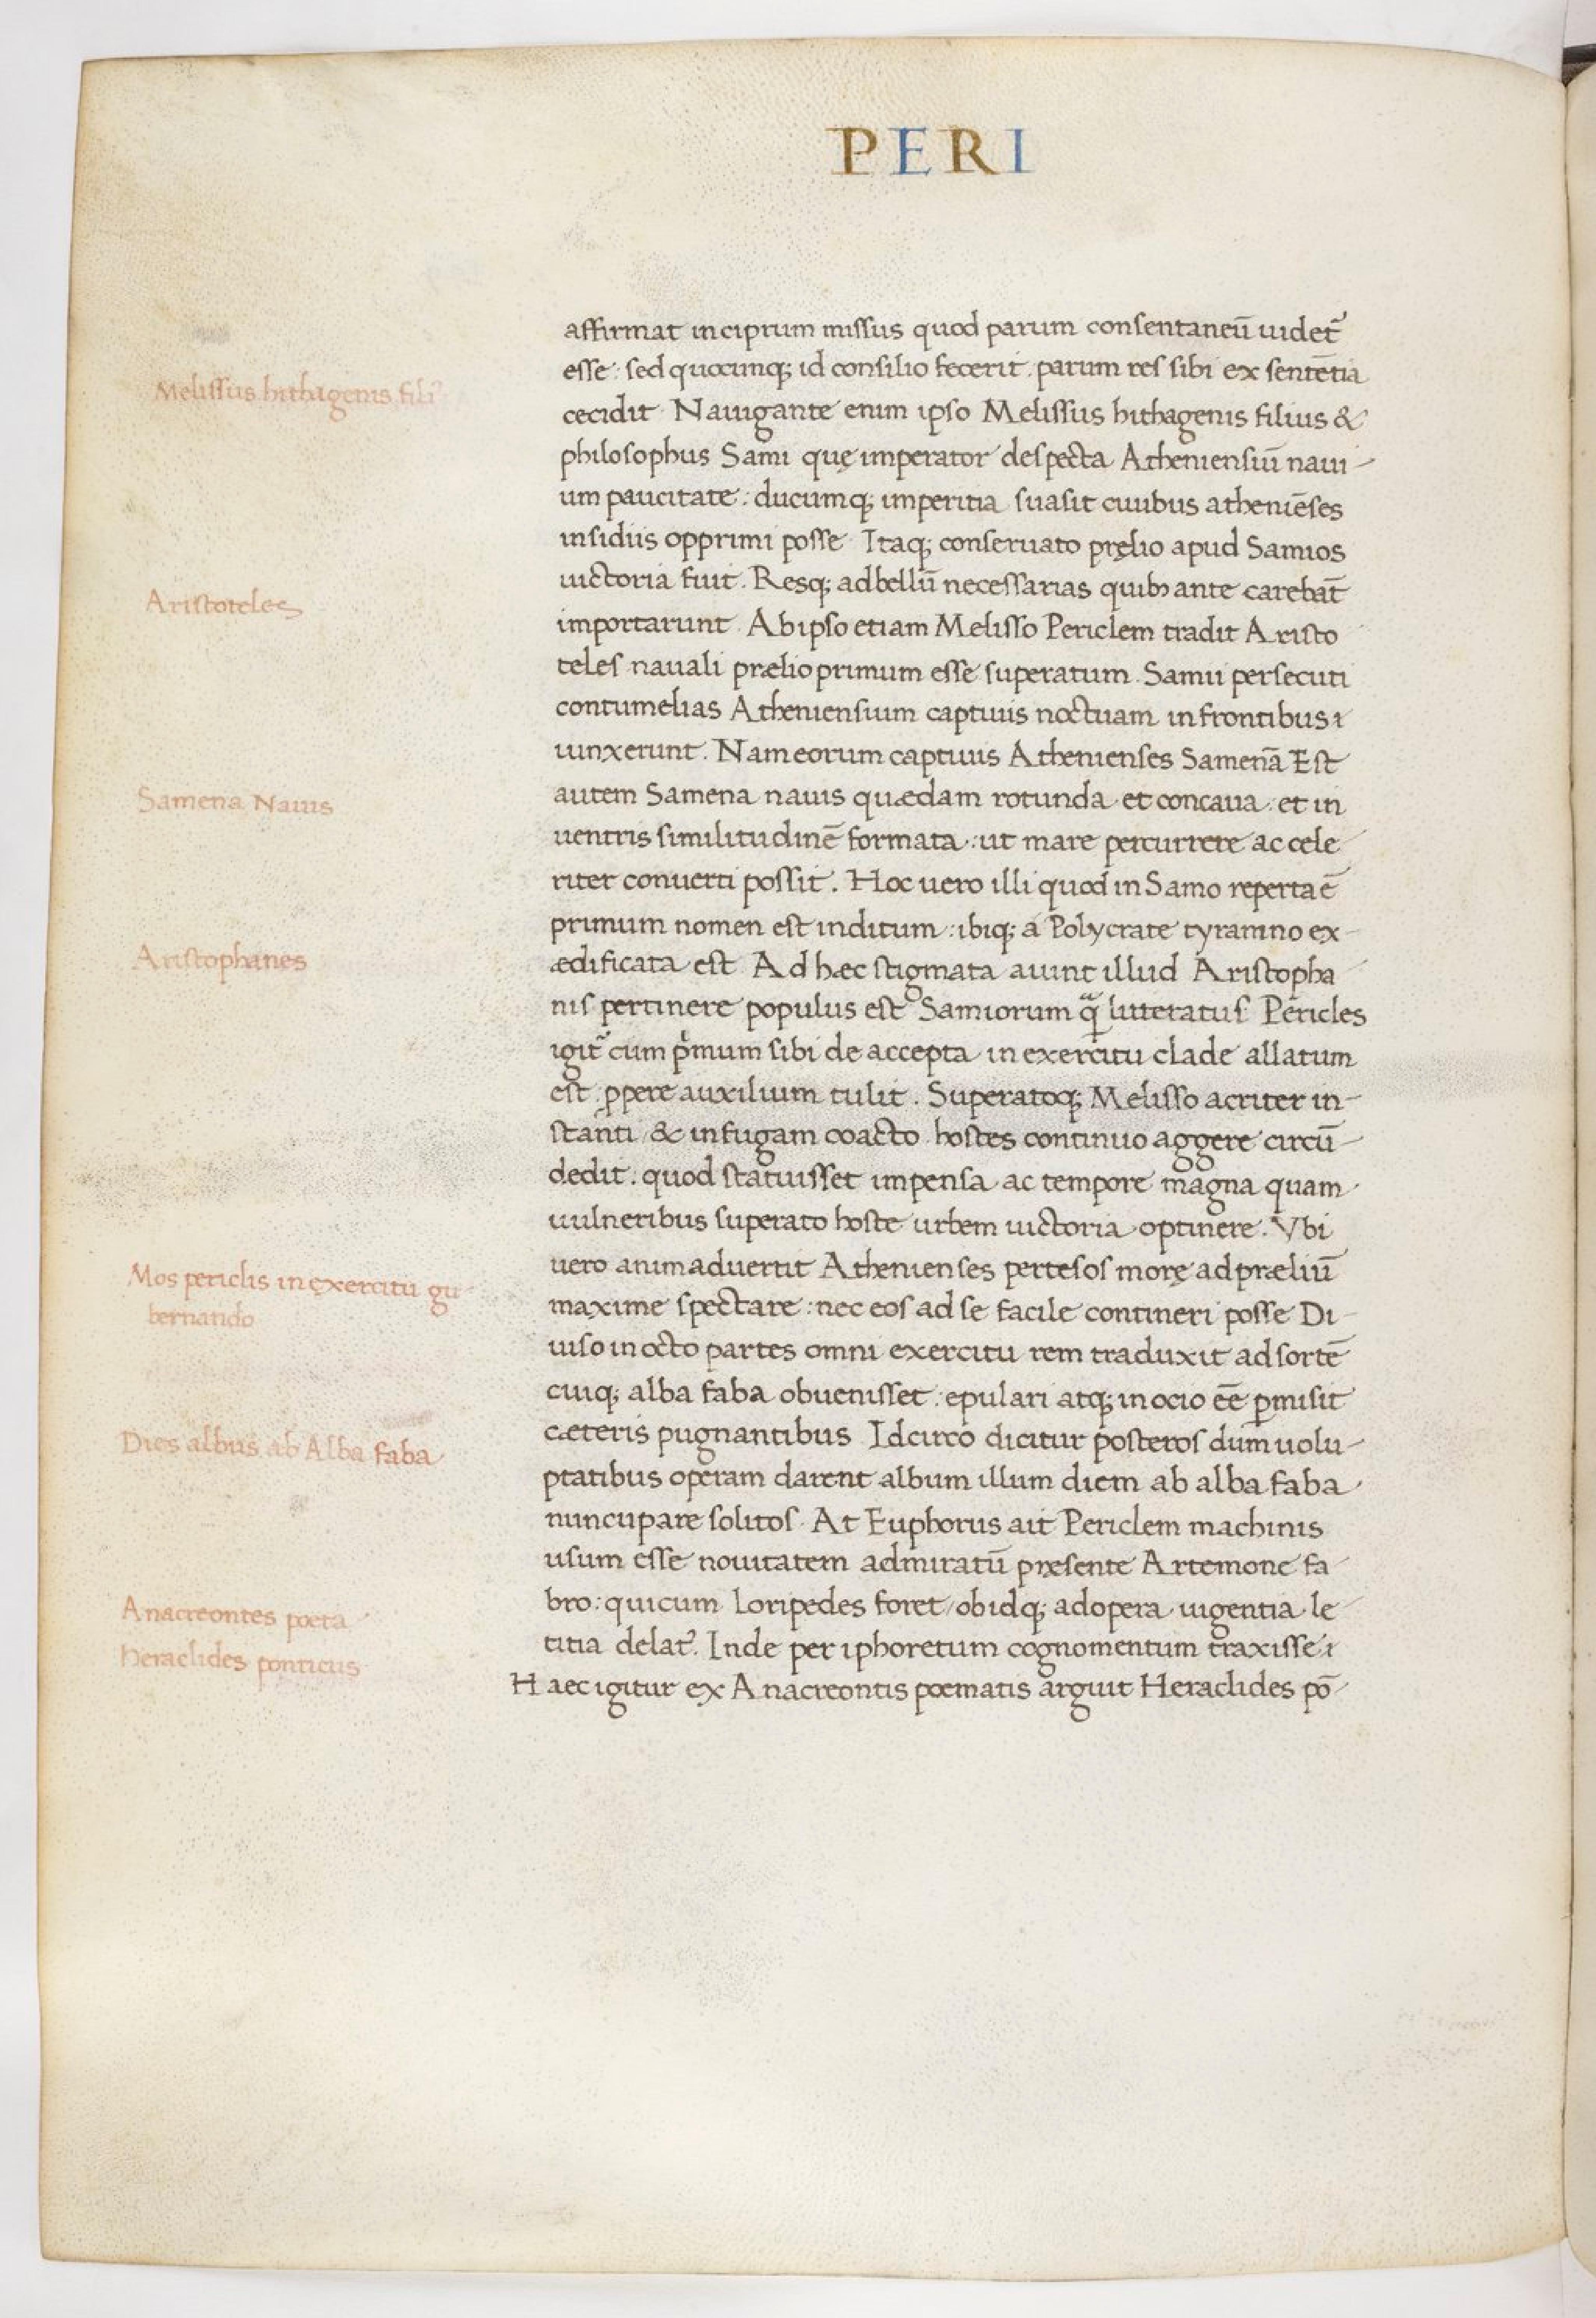 PERI
affirmat in ciprum missus quod parum consentaneū uidet᷑
esse : sed quocunq; id consilio fecerit . parum res sibi ex sentētia
Melissus hithagenis fili᾽
cecidit Nauigante enim ipso Melissus hithagenis filius &
philosophus Sami quę imperator despecta Atheniensiū naui-
um paucitate : ducumq; imperitia suasit ciuibus atheniēses
insidiis opprimi posse Itaq; conseruato pręlio apud Samios
Aristoteles
uictoria fuit . Resq; ad bellū necessarias quibꝫ ante carebāt
importarunt . Ab ipso etiam Melisso Periclem tradit Aristo
teles nauali prælio primum esse superatum . Samii persecuti
contumelias Atheniensium captiuis noctuam in frontibus i
uinxerunt . Nam eorum captiuis Athenienses Samenā Est
Samena Nauis
autem Samena nauis quædam rotunda et concaua : et in
uentris similitudinē formata : ut mare percurrere ac cele
riter conuerti possit . Hoc uero illi quod in Samo reperta ē
primum nomen est inditum : ibiq; a Polycrate tyranno ex-
Aristophanes
ædificata est Ad hæc stigmata aiunt illud Aristopha
nis pertinere populus est Samiorum litteratus Pericles
igit᷑ cum pͥmum sibi de accepta in exercitu clade allatum
est ꝓpere auxilium tulit . Superatoq; Melisso acriter in-
stanti & in fugam coacto hostes continuo aggere circū-
dedit : quod statuisset impensa ac tempore magna quam
uulneribus superato hoste urbem uictoria optinere . Vbi
Mos periclis in exercitu gu-
bernando
uero animaduertit Athenienses pertesos morę ad præliū
maxime spectare : nec eos ad se facile contineri posse Di-
uiso in octo partes omni exercitu rem traduxit ad sortē
cuiq; alba faba obuenisset : epulari atq; in ocio eē ꝑmisit
Dies albus ab Alba faba
cæteris pugnantibus Idcirco dicitur posteros dum uolu-
ptatibus operam darent album illum diem ab alba faba
nuncupare solitos . At Euphorus ait Periclem machinis
usum esse nouitatem admiratū præsente Artemone fa-
Anacreontes poeta
bro : quicum Loripedes foret / ob idq; ad opera uigentia le-
Heraclides ponticus
titia delat᷑ . Inde per iphoretum cognomentum traxisse i
Haec igitur ex Anacreontis poematis arguit Heraclides pō-